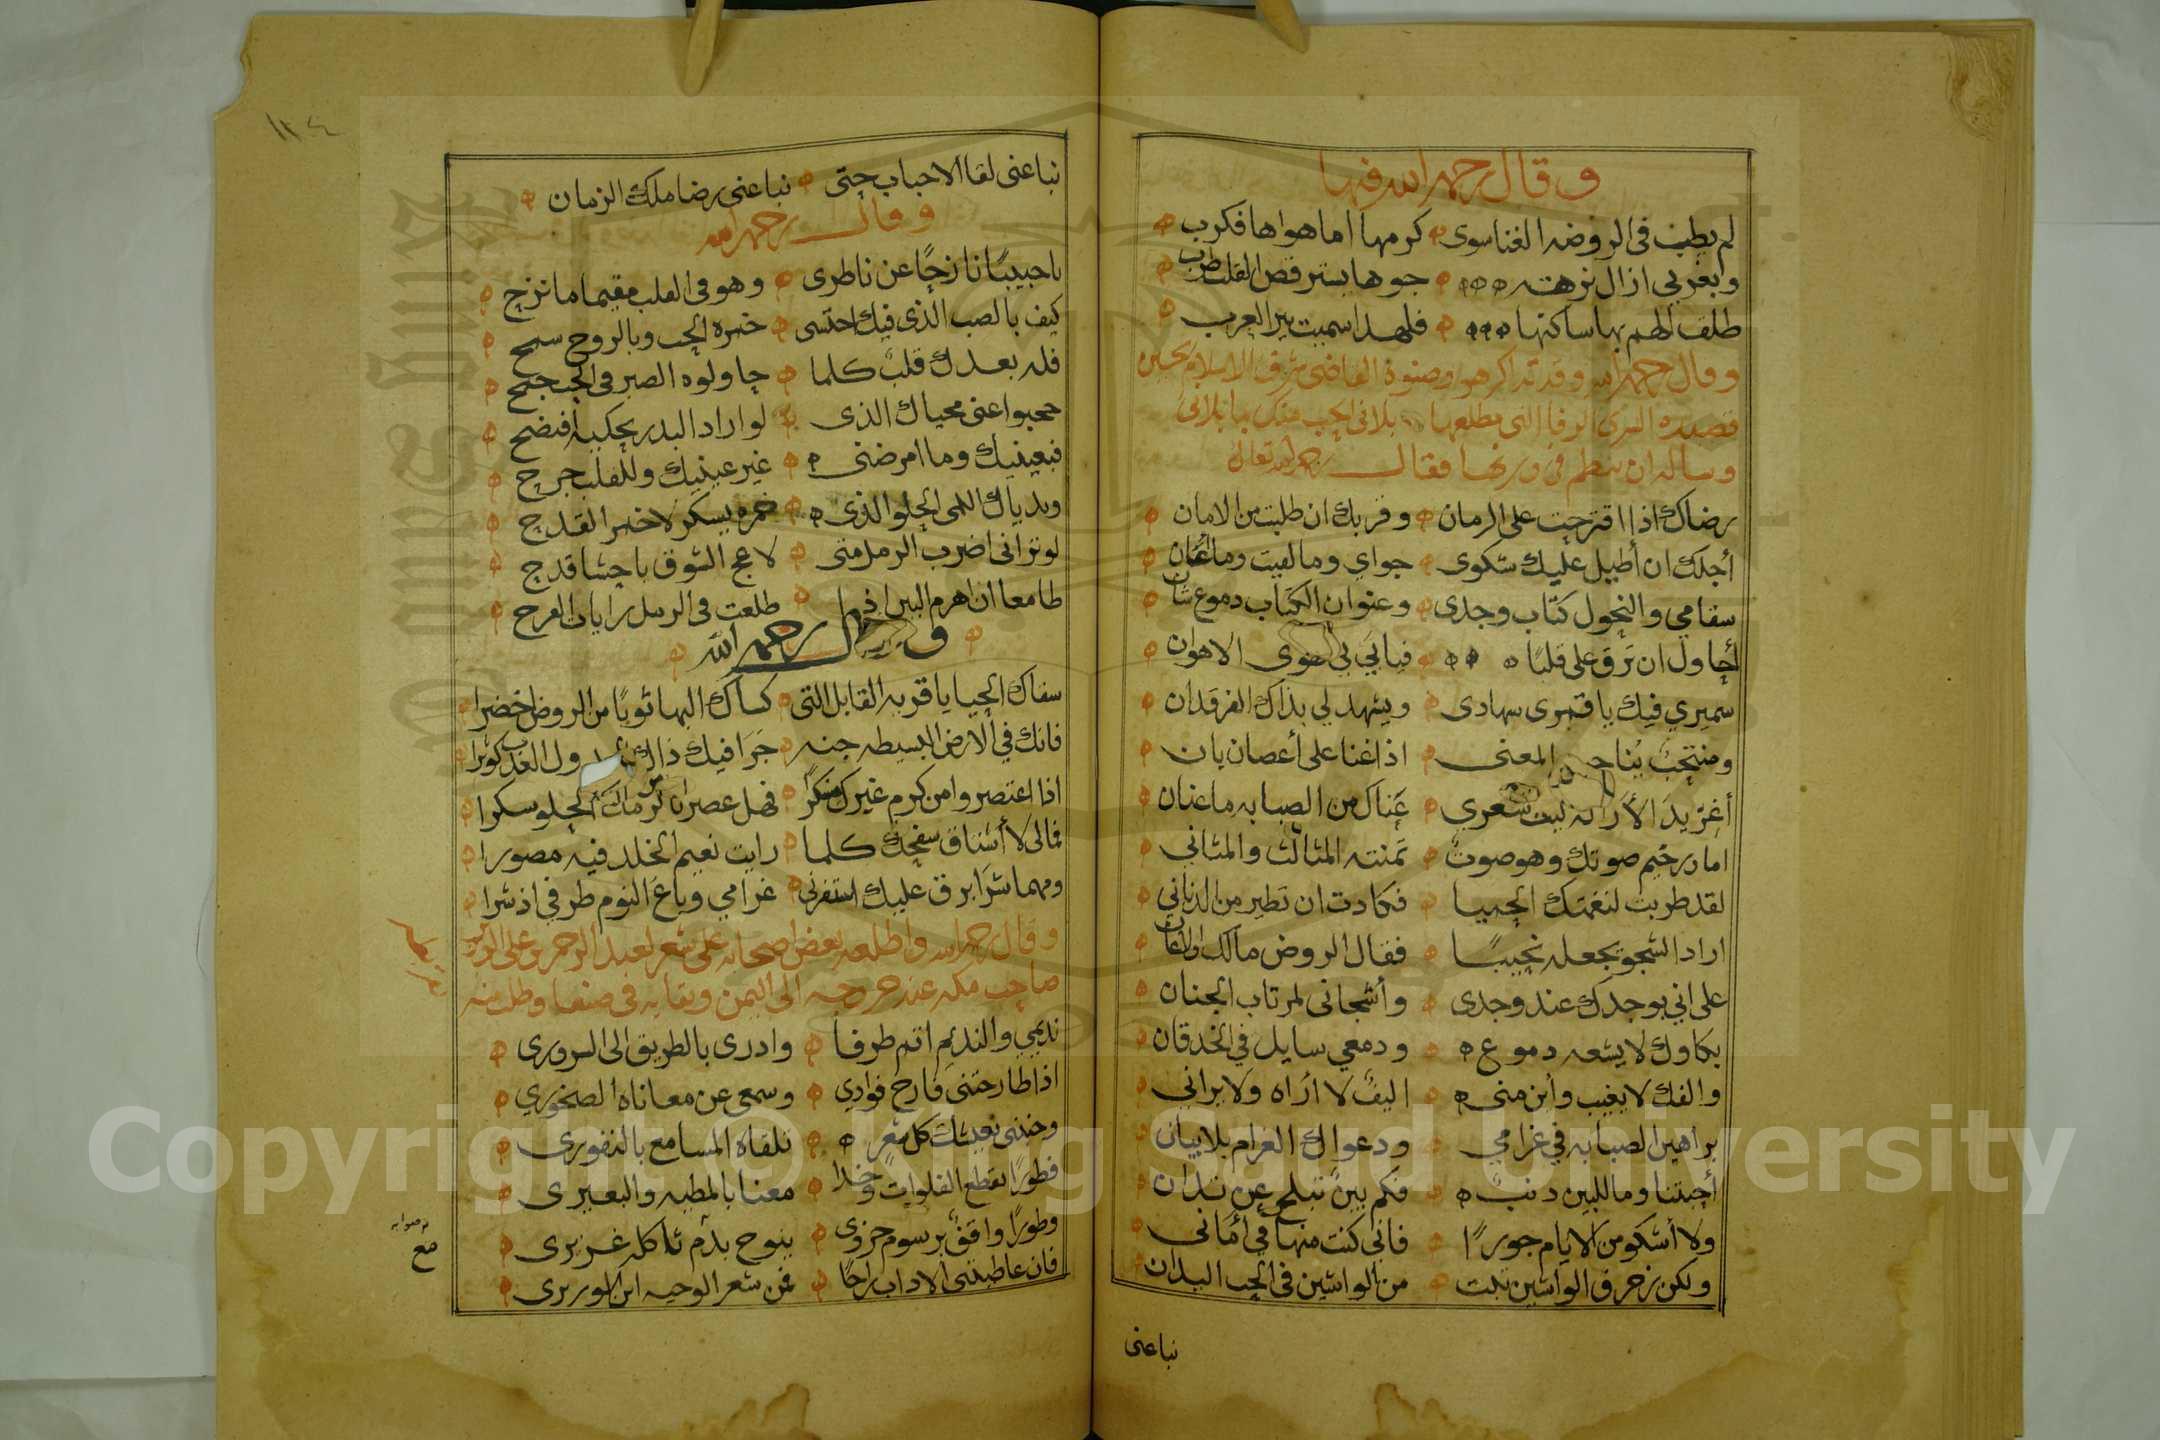 وقال رحمه الله فيها
لم يطب في الروضه الغنا سوى كرمها اما هواها فكرب
وبغربي ازال نزهت جوها يسترقص القلب طرب
طلق الهم بها ساكنها فلهذا سميت بير العرب
وقال رحمه الله وقد تذاكر هو وصنوه القاضي شرف الاسلام بحسن
قصيدة السري الرفا التي مطلعها بلاني الحب منك بما بلاني
وساله ان ينظم في وزنها فقال رحمه الله تعالى
رضاك اذا اقترحت على الزمان وقربك ان طلبت من الامان
أجلك ان أطيل عليك شكوى جواي وما لقيت وما أعان
سقامي والنحول كتاب وجدى وعنوان الكتاب دموع شان
أحاول ان ترق علي قلبا فيابي لي الهوى الا هوان
سميري فيك يا قمرى سهادى ويشهد لي بذاك الفرقدان
ومنتحب المعنى اذا غنا على أغصان بان
أغريد الأراكة ليت شعري عناك من الصبابه ما عنان
اما ورخيم صوتك وهو صوت تمنته المثالث والمثاني
لقد طربت لنغمتك الحميا فكادت ان تطير من الدناني
اراد الشجو يجعله نحيبا فقال الروض مالك والاغان
على اني بوجدك عند وجدى وأشجانى لمرتاب الجنان
بكاوك لا يشعه دموع ودمعي سايل في الخدقان
والفك لا يغيب وأين منى اليف لا أراه ولا يراني
براهين الصبابه في غرامي ودعواك الغرام بلا بيان
أحبتنا وما للبين ذنب فكم بين تبلج عن تدان
ولا أشكو من الايام جورا فانى كنت منها في أمانى
ولكن زخرف الواشين نلت من الواشين في الحب اليدان
نباعنى
١٣٤
نباعنى لقا الاحباب حتى نباعنى رضا ملك الزمان
وقال رحمه الله
يا حبيبا نازحا عن ناظرى وهو في القلب مقيما ما نزح
كيف بالصب الذى فيك احتسى خمرة الحب وبالروح سمح
فله بعدك قلب كلما حاولوه الصبر في الحب جمح
حجبوا عنى محياك الذى لو اراد البدر يحكيه افتضح
فبعينيك وما امرضنى غير عينيك وللقلب جرح
وبدياك اللمى الحلو الذى خمره يسكر لا خمر القدح
لو ترانى اضرب الرمل متى لاعج الشوق باحشا قدح
طامعا ان اهزم البين اذا طلعت في الرمل رايات الفرح
وقال رحمه الله
سقاك الحيا يا قريه القابل التى كساك البها ثوبا من الروض اخضرا
فانك في الارض البسيطه جنه جرا فيك ذاك العذب كوثرا
اذا اعتصروا من كرم غيرك منكرا فهل عصرا من كرماتك الحلو سكرا
فمالى لا أشتاق سفحك كلما رايت نعيم الخلد فيه مصورا
ومهما شرا برق عليك استفزني غرامي وباع النوم طرفي اذ شرا
وقال رحمه الله واطلعه بعض اصحابه على شعر لعبد الرحمن وعلى
صاحب مكه عند خروجه الى اليمن وبقايه في صنعا وطلب منه
نديمي والنديم اتم ظرفا وادرى بالطريق الى السرورى
اذا طارحتنى فارح فوادي وسمعى عن معاناه الصخوري
وجنبنى كل شعر تلقاه المسامع بالنفورى
فطورا يقطع الفلوات وخدا معنا بالمطيه والبعيرى
وطورا واقف برسوم حزوى ينوح بدم ثاكله غزيرى
فان عاطيتنى الاداب راحا فمن شعر الوحيه ابن الوريرى
صح
Copyright © King Saud University